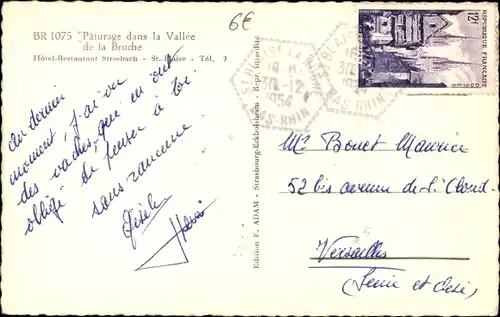 BR 1075 Pâturage dans la Vallée
de la Bruche
Hôtel-Restaurant Strasbach - St. Blaise - Tél. 7
6€
Au dernier
moment, j'ai vu
des vaches, qui m'ont
obligé de penser à toi
sans rancune
Gisèle
Edition E. ADAM - Strasbourg-Eckbolsheim - Repr. interdite
ST BLAISE LA ROCHE
18 H
30-12
1954
BAS-RHIN
12F
REPUBLIQUE FRANÇAISE
POSTES
Mr Bouet Maurice
52 bis avenue de St Cloud
Versailles
(Seine et Oise)